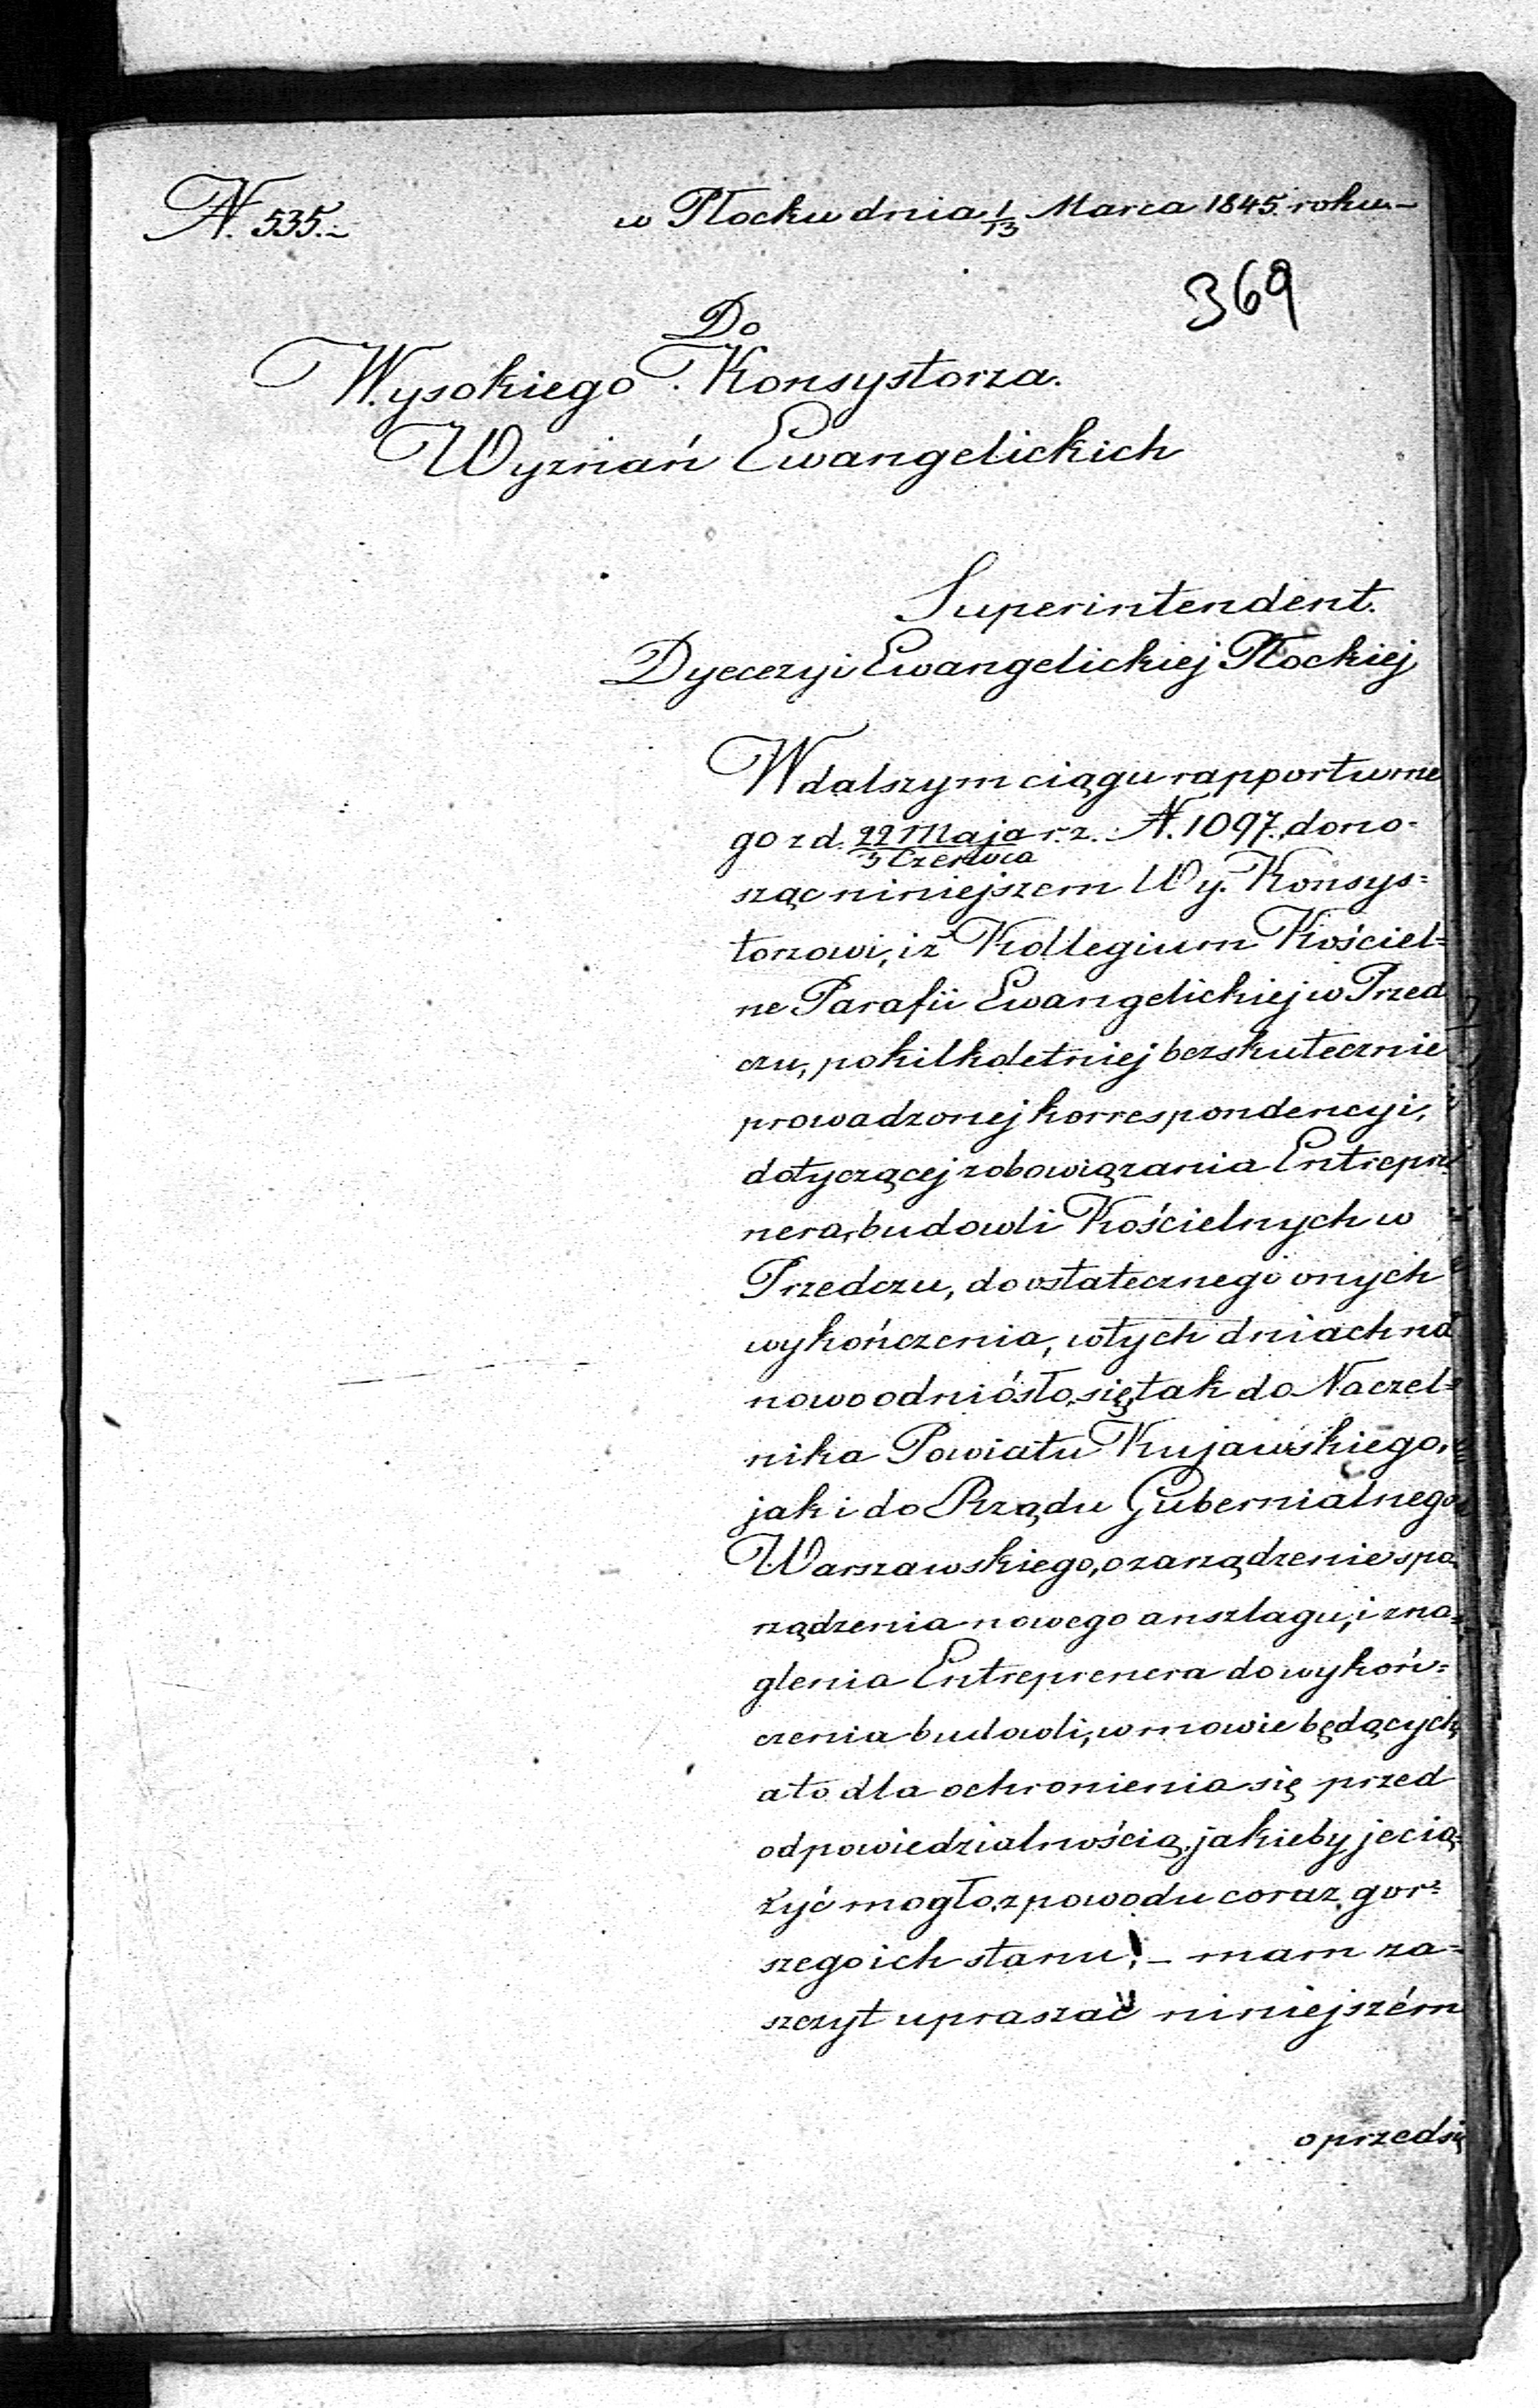 N. 535.
w Płocku dnia 1/13 Marca 1845. roku.
369
Do
Wysokiego Konsystorza.
Wyznań Ewangelickich
Superintendent.
Dyecezyi Ewangelickiej Płockiej
W dalszym ciągu rapportu me
go z d. 22 Maja/3 Czerwca r. z. N. 1097. dono-
sząc niniejszem Wy. Konsys=
torzowi, iż Kollegium Kościel=
ne Parafii Ewangelickiej w Przed
czu, po kilkoletniej bezskutecznie
prowadzonej korrespondencyi,
dotyczącej zobowiązania Entrepre
nera, budowli Kościelnych w
Przedczu, do ostatecznego onych
wykończenia, w tych dniach na
nowo odniósło, się, tak do Naczel=
nika Powiatu Kujawskiego,
jak i do Rządu Gubernialnego
Warszawskiego, o zarządzenie spo
rządzenia nowego anszlagu, i zna=
glenia Entreprenera do wykoń=
czenia budowli, w mowie będących,
a to dla ochronienia się przed
odpowiedzialnością, jakieby je cią=
żyć mogło, z powodu coraz gor=
szego ich stanu! – mam za=
szczyt upraszać niniejszém
o przedsię